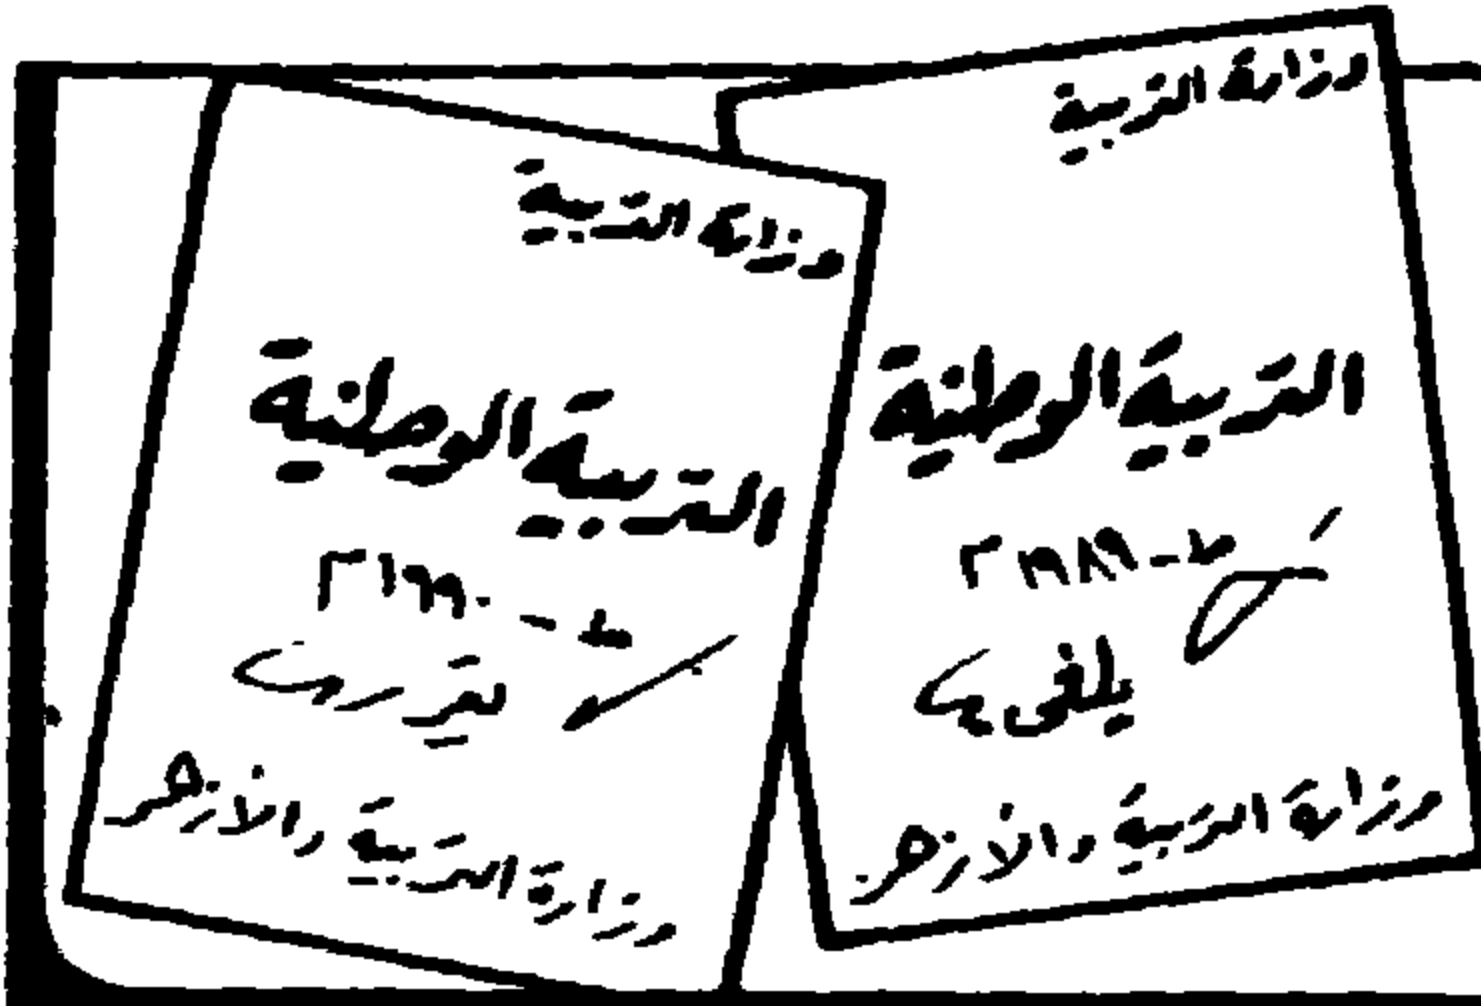 وزارة التربية
التربية الوطنية
ط - ١٩٨٩ م
يلغى
وزارة التربية والأزهر
وزارة التربية
التربية الوطنية
ط - ١٩٩٠ م
يقرر
وزارة التربية والأزهر